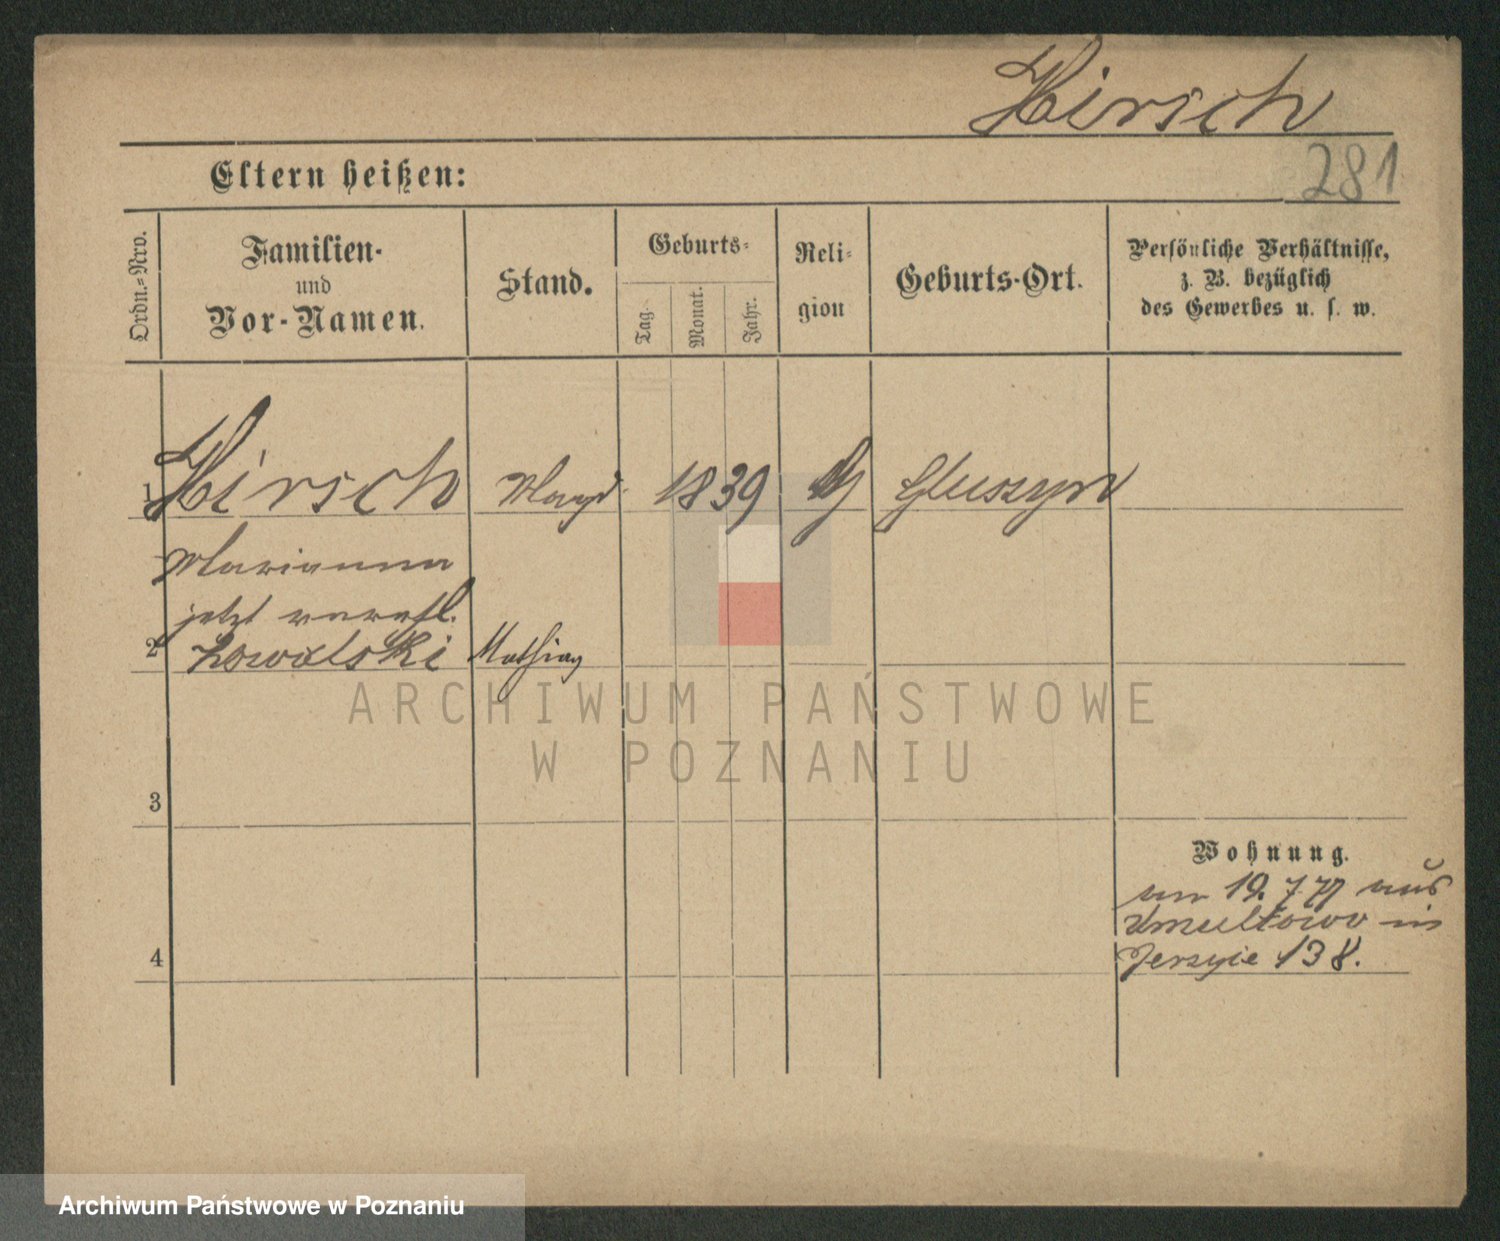 Hirsch
281
Eltern heißen:
Ordn.-Nro.
Familien-
und
Vor-Namen.
Stand.
Geburts-
Tag.
Monat.
Jahr.
Reli-
gion
Geburts-Ort.
Persönliche Verhältnisse,
z. B. bezüglich
des Gewerbes u. s. w.
1 Hirsch Magd 1839 Gluszyn
Marianna
jetzt verehl.
2 Kowalski
3
ARCHIWUM PAŃSTWOWE
W POZNANIU
Wohnung.
am 19. 7. 77 aus
Umultowo in
4 Jersyce 138.
Archiwum Państwowe w Poznaniu